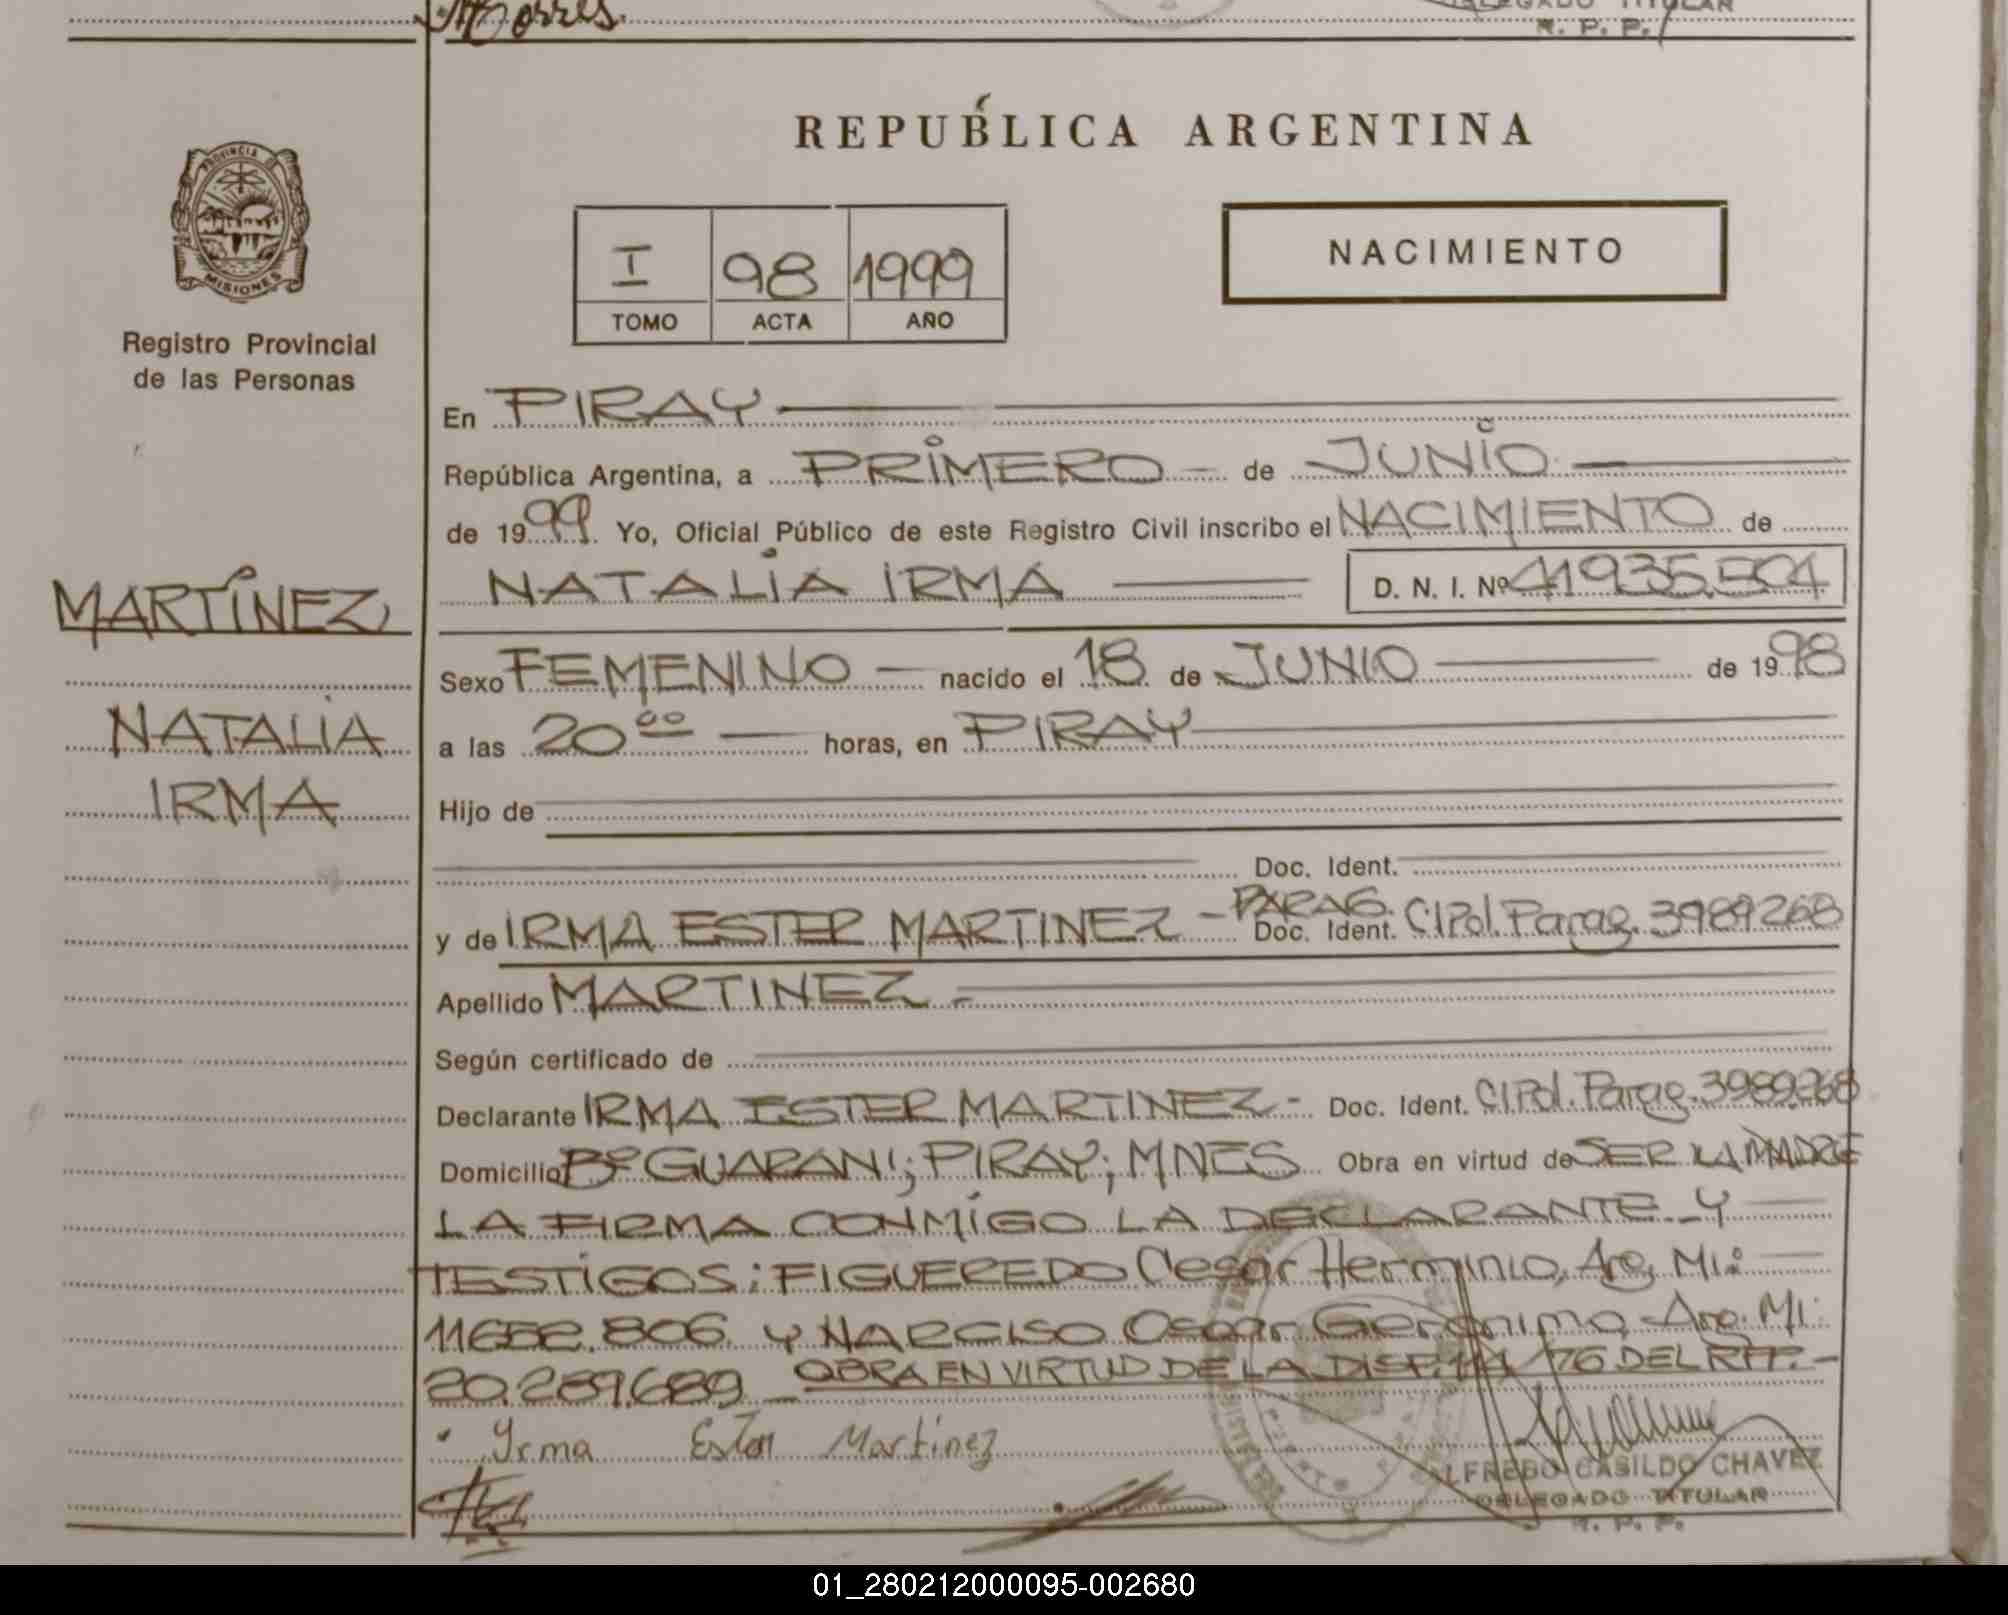 Torres
DELEGADO TITULAR
R. P. P.
REPÚBLICA ARGENTINA
PROVINCIA DE
MISIONES
Registro Provincial
de las Personas
I 98 1999
TOMO ACTA AÑO
NACIMIENTO
En PIRAY
República Argentina, a PRIMERO de JUNIO
de 1999 Yo, Oficial Público de este Registro Civil inscribo el NACIMIENTO de
MARTÍNEZ
NATALIA IRMA D. N. I. Nº 41935.504
Sexo FEMENINO nacido el 18 de JUNIO de 1998
NATALIA
a las 20 ºº horas, en PIRAY
IRMA
Hijo de
Doc. Ident.
y de IRMA ESTER MARTINEZ - PARAG. Doc. Ident. CIPol. Parag. 3989268
Apellido MARTINEZ -
Según certificado de
Declarante IRMA ESTER MARTINEZ - Doc. Ident. CIPol. Parag. 3989.268
Domicilio Bº GUARANI; PIRAY; MNES Obra en virtud de SER LA MADRE
LA FIRMA CONMIGO LA DECLARANTE Y
TESTIGOS: FIGUEREDO Cesar Herminio, Arg, MI:
11652.806 y NARCISO Oscar Geronimo Arg. MI:
20.289.689 OBRA EN VIRTUD DE LA DISP. 114/76 DEL RPP. -
Yrma Ester Martinez
ALFREDO CASILDO CHAVEZ
DELEGADO TITULAR
R. P. P.
01_280212000095-002680